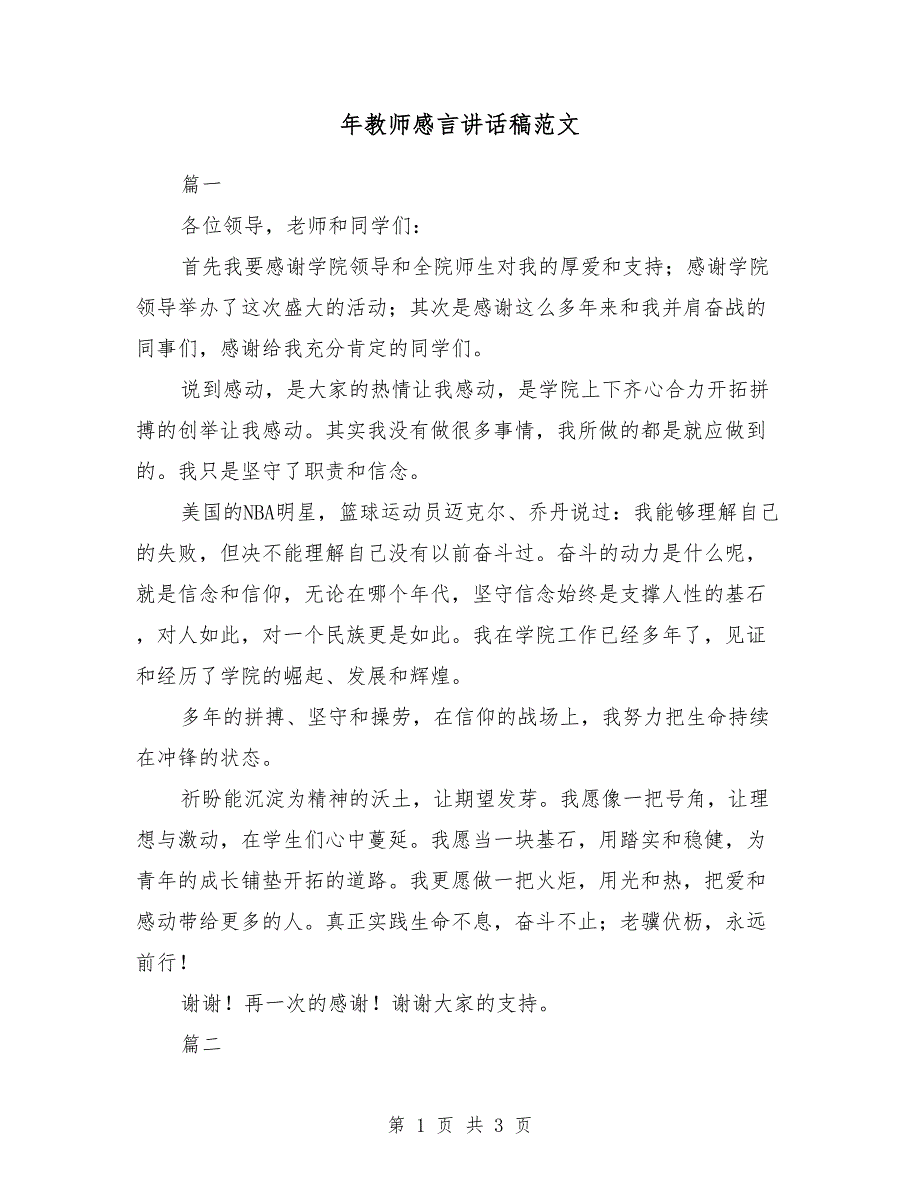 年教师感言讲话稿范文
篇一
各位领导，老师和同学们：
首先我要感谢学院领导和全院师生对我的厚爱和支持；感谢学院
领导举办了这次盛大的活动；其次是感谢这么多年来和我并肩奋战的
同事们，感谢给我充分肯定的同学们。
说到感动，是大家的热情让我感动，是学院上下齐心合力开拓拼
搏的创举让我感动。其实我没有做很多事情，我所做的都是就应做到
的。我只是坚守了职责和信念。
美国的NBA明星，篮球运动员迈克尔、乔丹说过：我能够理解自己
的失败，但决不能理解自己没有以前奋斗过。奋斗的动力是什么呢，
就是信念和信仰，无论在哪个年代，坚守信念始终是支撑人性的基石
，对人如此，对一个民族更是如此。我在学院工作已经多年了，见证
和经历了学院的崛起、发展和辉煌。
多年的拼搏、坚守和操劳，在信仰的战场上，我努力把生命持续
在冲锋的状态。
祈盼能沉淀为精神的沃土，让期望发芽。我愿像一把号角，让理
想与激动，在学生们心中蔓延。我愿当一块基石，用踏实和稳健，为
青年的成长铺垫开拓的道路。我更愿做一把火炬，用光和热，把爱和
感动带给更多的人。真正实践生命不息，奋斗不止；老骥伏枥，永远
前行！
谢谢！再一次的感谢！谢谢大家的支持。
篇二
第 1 页 共 3 页